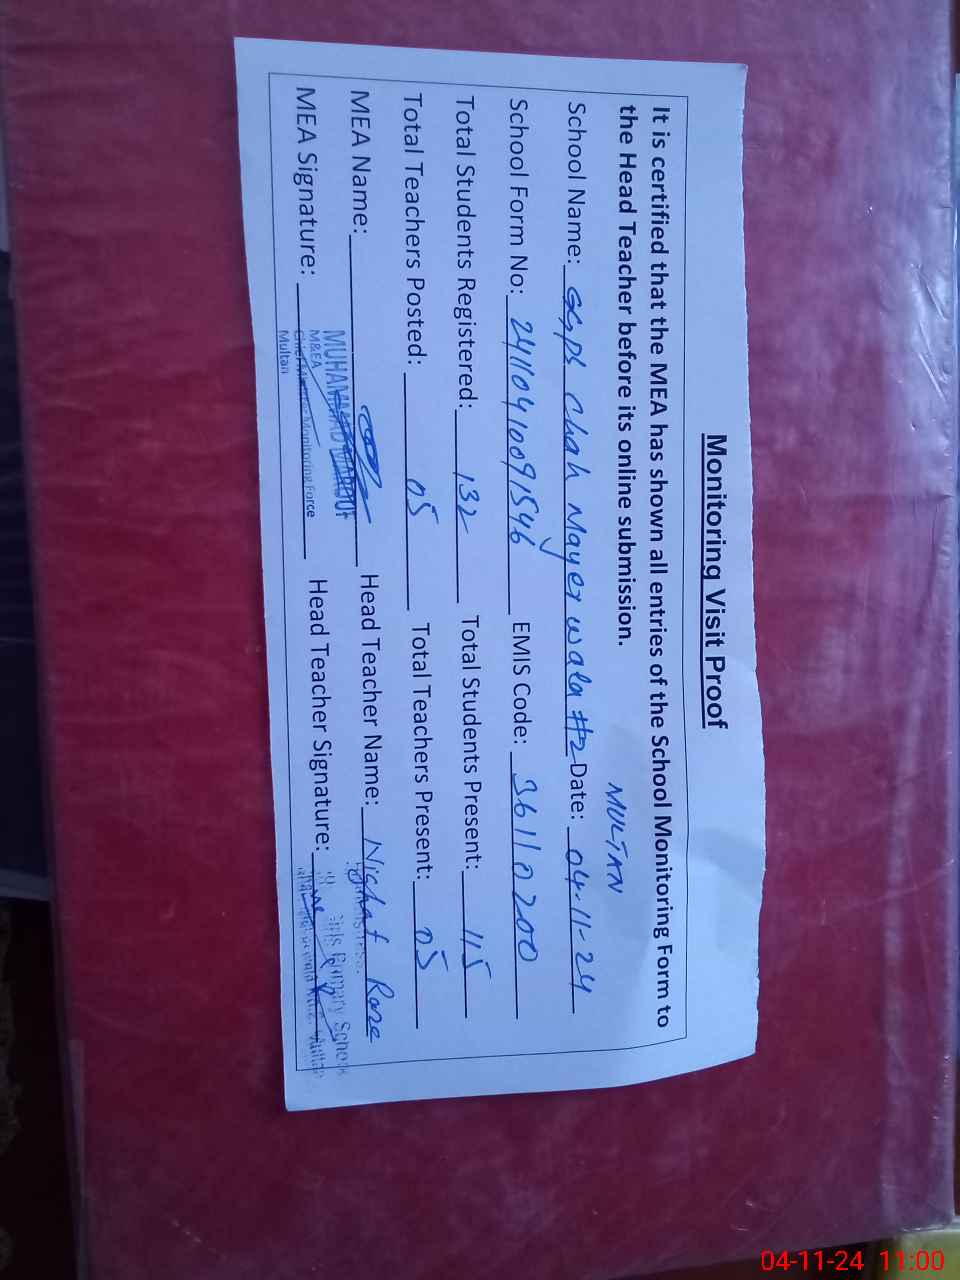 Monitoring Visit Proof
It is certified that the MEA has shown all entries of the School Monitoring Form to
the Head Teacher before its online submission.
MULTAN
School Name: GGPS Chah Mayer wala #2 Date: 04-11-24
School Form No: 24110410091546 EMIS Code: 36110200
Total Students Registered: 132 Total Students Present: 115
Total Teachers Posted: 05 Total Teachers Present: 05
MEA Name: Head Teacher Name: Nighat Rose
MUHAMMAD
M&EA
Chief Minister Monitoring Force
Multan
MEA Signature: Head Teacher Signature:
Girls Primary School
Multan
04-11-24 11:00